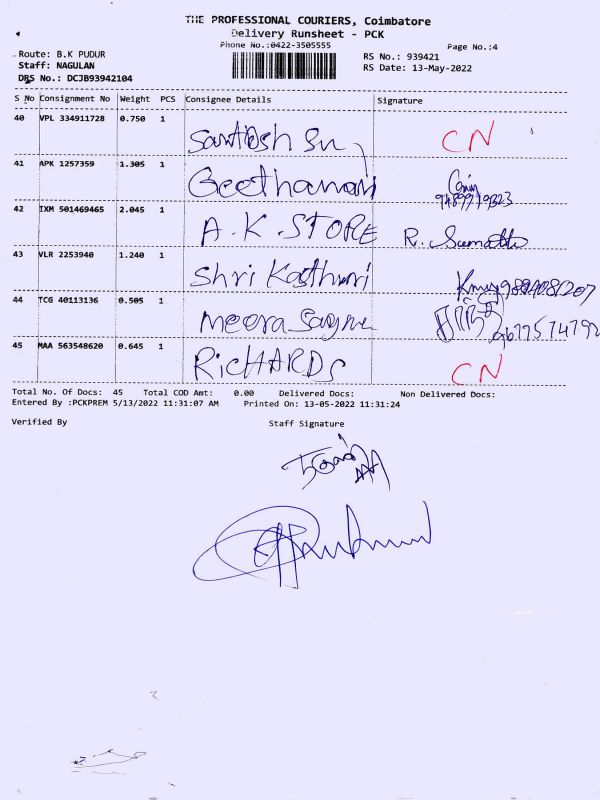 THE PROFESSIONAL COURIERS, Coimbatore
Delivery Runsheet - PCK
Phone No.:0422-3505555
Page No.:4
Route: B.K PUDUR
RS No.: 939421
Staff: NAGULAN
RS Date: 13-May-2022
DRS No.: DCJB93942104
S No Consignment No Weight PCS Consignee Details Signature
40 VPL 334911728 0.750 1 Santosh CN
41 APK 1257359 1.305 1
42 IXM 501469465 2.045 1 A.K.STORE R.
43 VLR 2253940 1.240 1 Shri Kasthuri
44 TCG 40113136 0.505 1 Meera 9677574792
45 MAA 563548620 0.645 1 RICHARDS CN
Total No. Of Docs: 45 Total COD Amt: 0.00 Delivered Docs: Non Delivered Docs:
Entered By :PCKPREM 5/13/2022 11:31:07 AM Printed On: 13-05-2022 11:31:24
Verified By Staff Signature